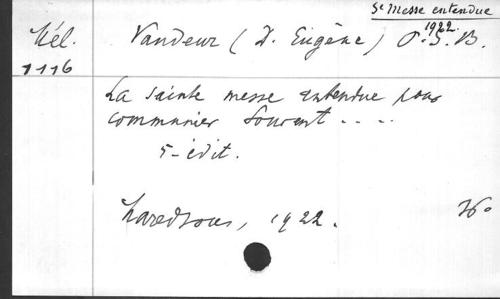 Ste Messe entendue
1922.
Mél. Vandeur (D. Eugène) O.S.B.
1116
La sainte messe entendue pour
communier souvent . . . .
5e édit.
Maredsous, 1922.